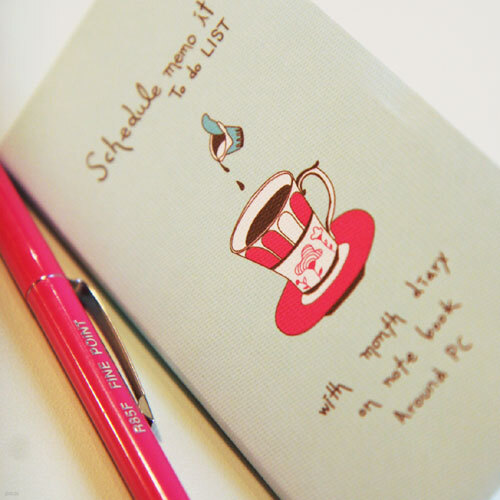 Schedule memo it
To do LIST
with month diary
on note book
Around PC
R85F FINE POINT